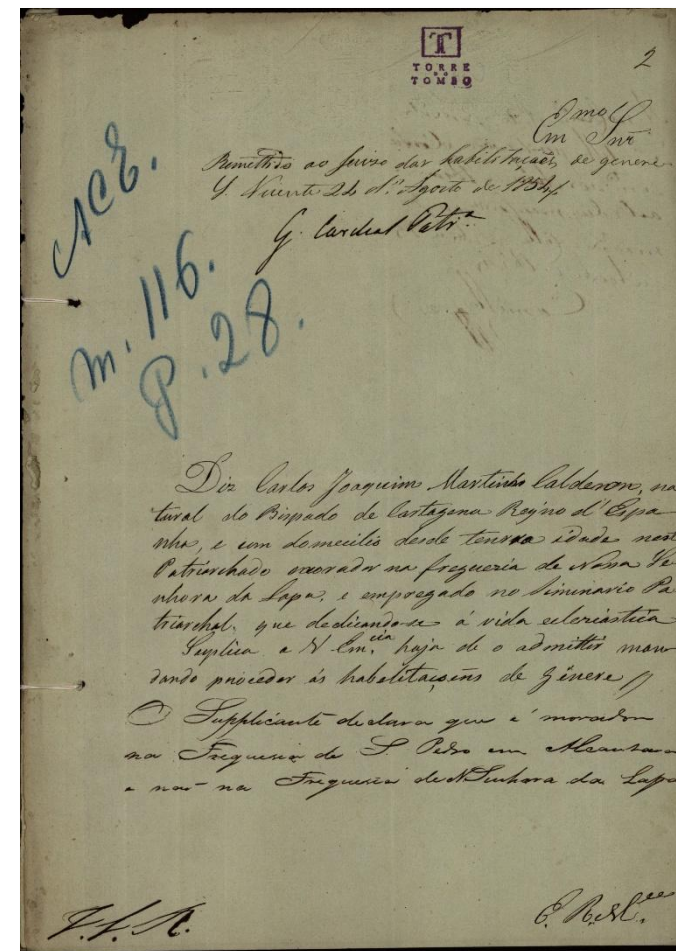 TORRE
DO
TOMBO
2
Emo
Em Snr
Remettido ao juizo das habilitações de genere
S. Vicente 26 d'Agosto de 1854
G. Cardeal Patr.ª
ACE.
m. 116.
P. 28.
Diz Carlos Joaquim Martinho Calderon, na
tural do Bispado de Cartagena Reyno d'Espa
nha, e com domicilio desde tenrra idade neste
Patriarchado morador na freguezia de Nossa Se
nhora da Lapa, e empregado no Siminario Pa
triarchal, que dedicando-se á vida eclesiástica
Supplica a V Em.cia haja de o admittir man
dando proceder ás habelitaçoens de Génere //
O Supplicante declara que é morador
na Freguesia de S. Pedro em Alcantara
e não na Freguesia de N Senhora da Lapa
E. R. M.ce